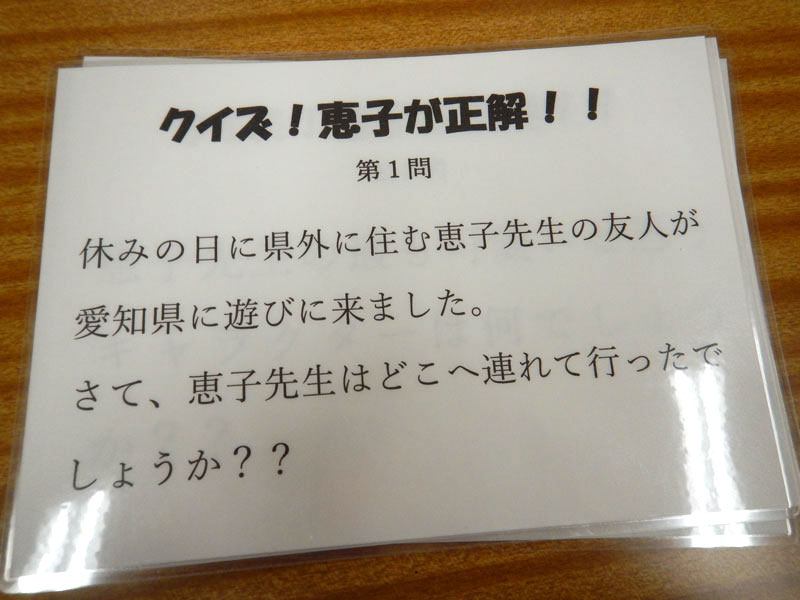 クイズ！恵子が正解！！
第１問
休みの日に県外に住む恵子先生の友人が
愛知県に遊びに来ました。
さて、恵子先生はどこへ連れて行ったで
しょうか？？